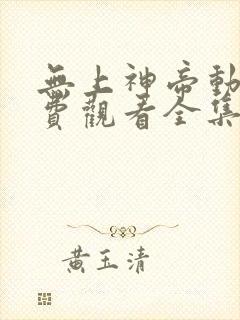 無上神帝動
費觀看全集
黃玉清